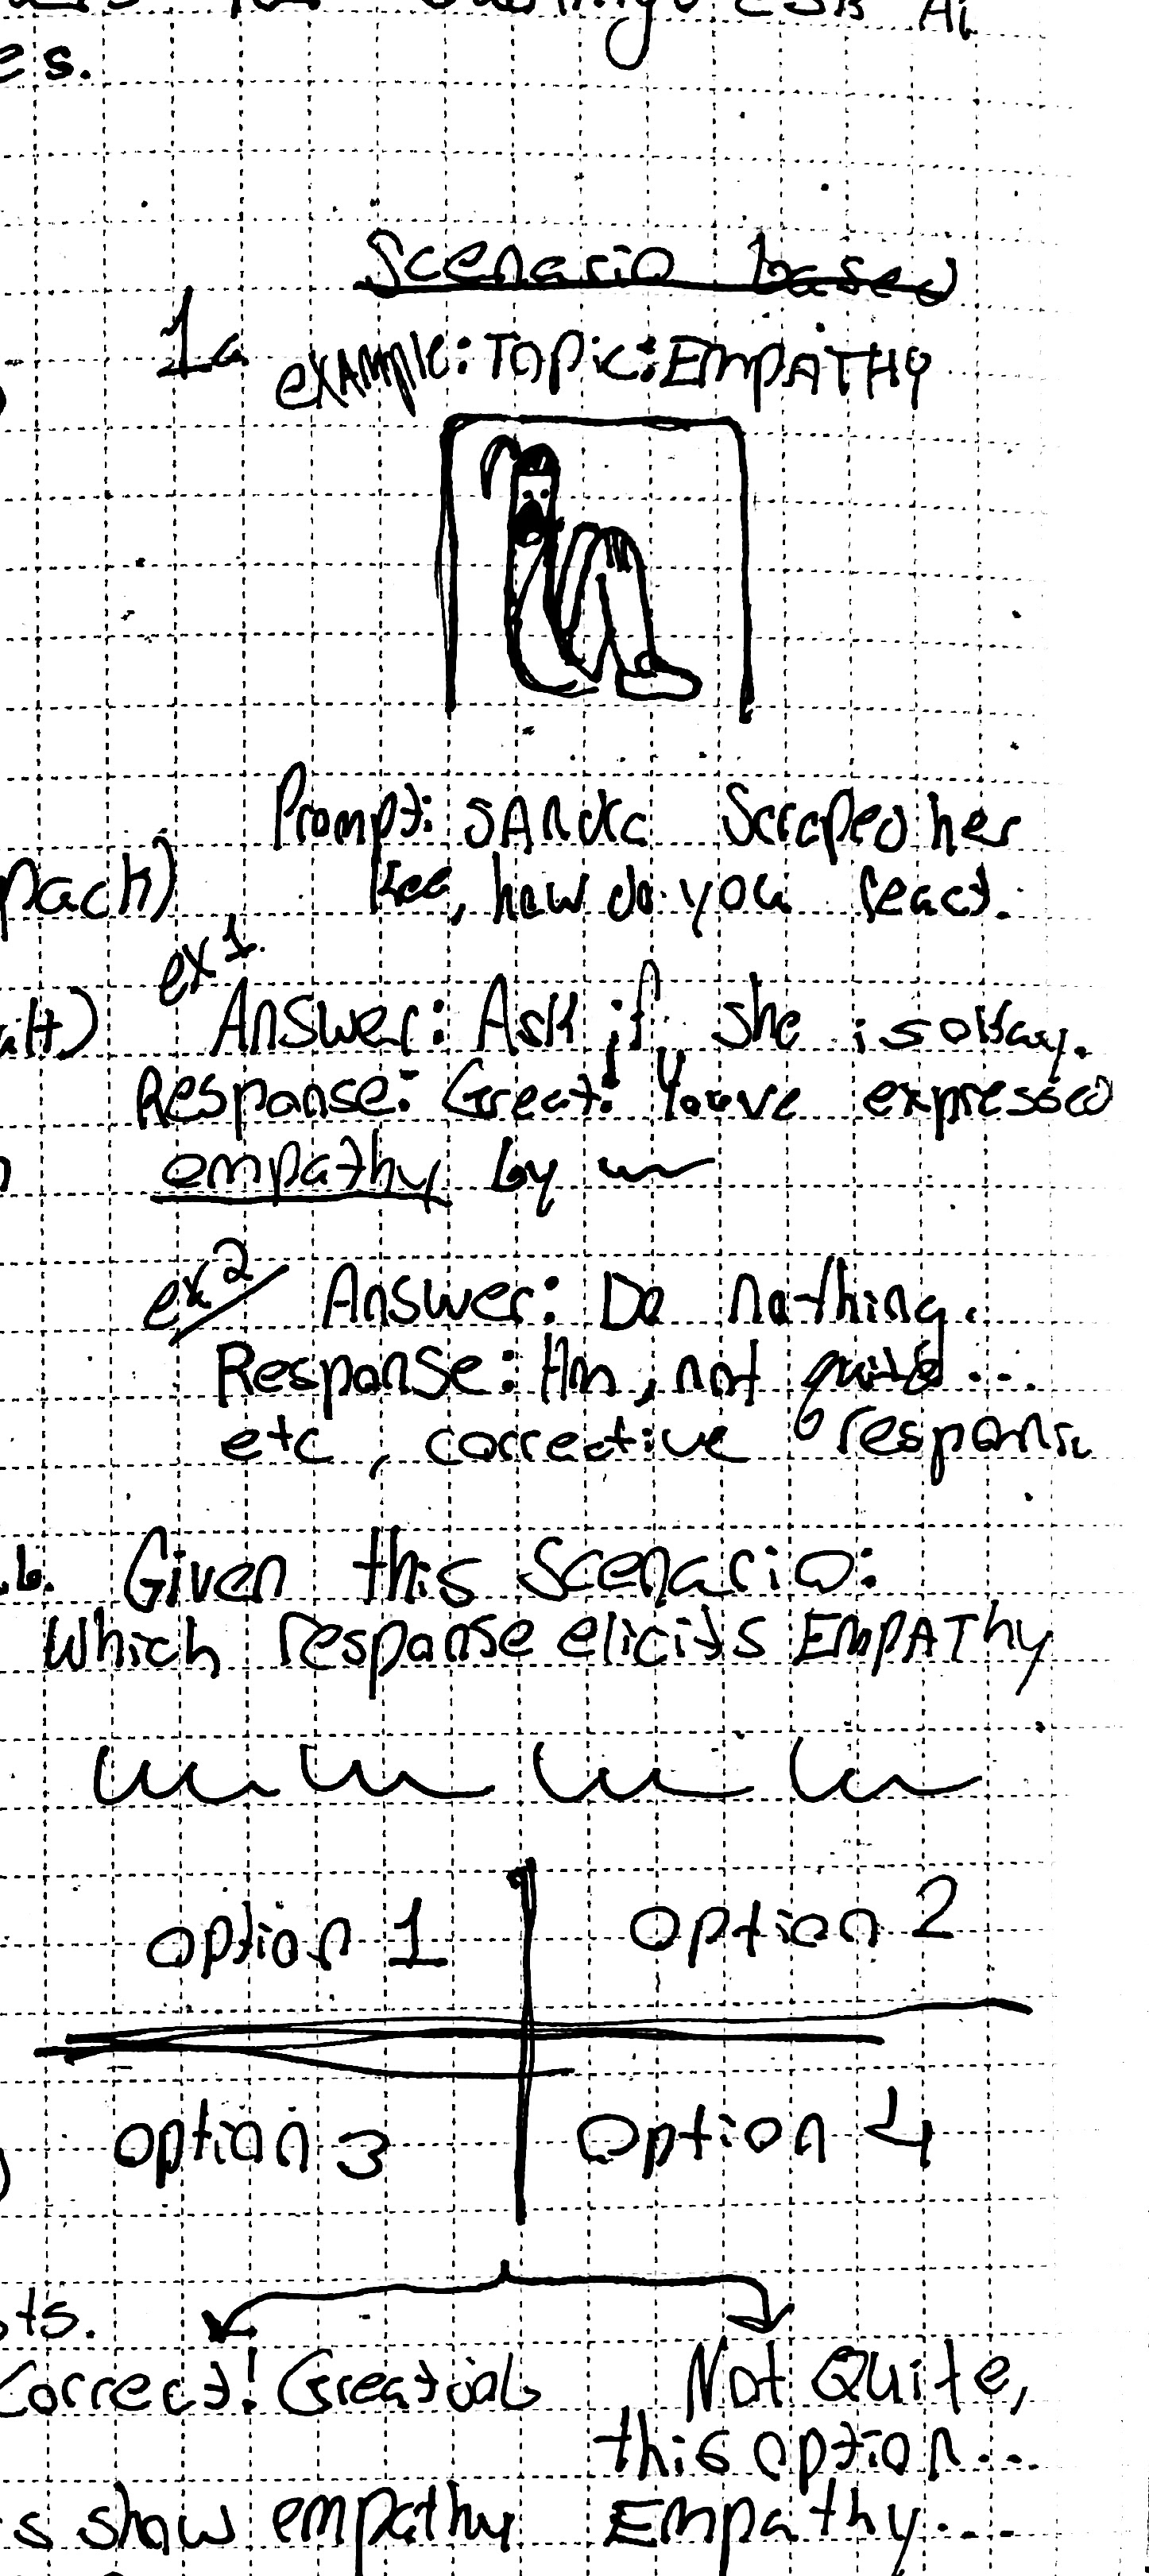 es.
Scenario based
1a example: Topic: EMPATHY
Prompt: Scraped her
pach) how do you react.
ex 1.
Answer: Ask if she is okay.
Response: Great! Youve expressed
empathy by
ex 2 Answer: Do nothing.
Response: Hm, not quite...
etc, corrective
b. Given this Scenario:
Which response elicits EMPATHY
option 1 option 2
option 3 option 4
sts.
Correct! Great job Not Quite,
this option...
s show empathy Empathy...